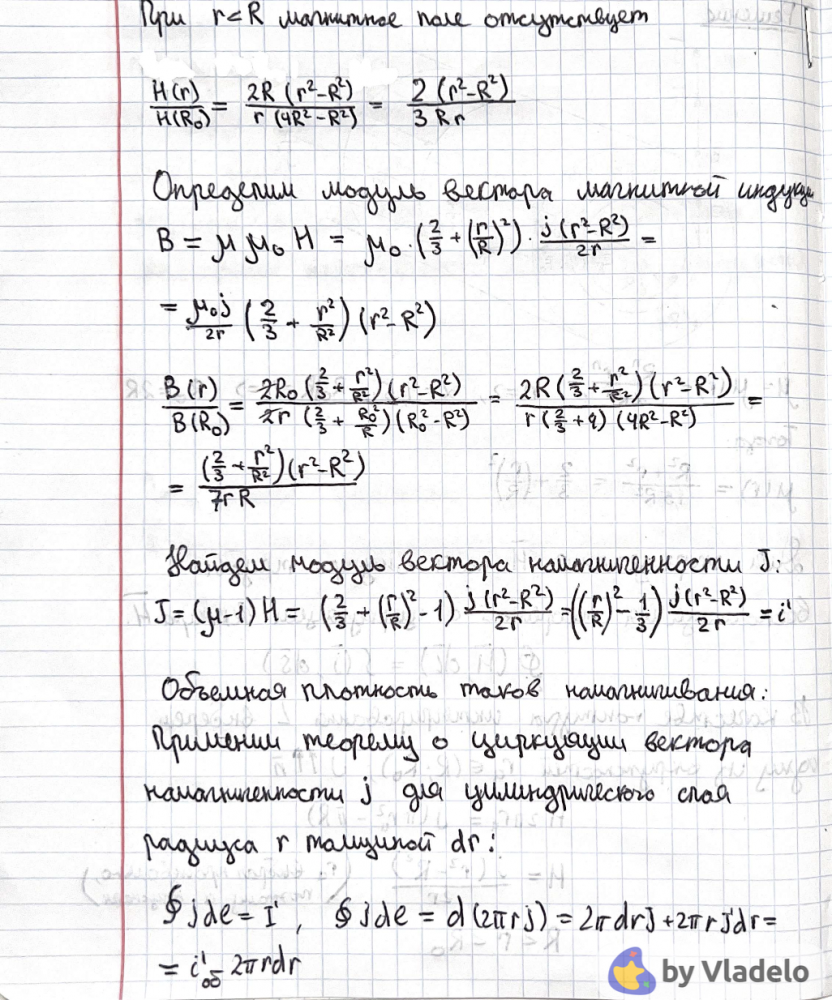 При r<R магнитное поле отсутствует
H(r)/H(R₀) = 2R (r²-R²)/r (4R²-R²) = 2 (r²-R²)/3 R r
Определим модуль вектора магнитной индукции
B = μ μ₀ H = μ₀ · (2/3 + (r/R)²) · j (r²-R²)/2r =
= μ₀j/2r (2/3 + r²/R²) (r²-R²)
B(r)/B(R₀) = 2R₀ (2/3 + r²/R²) (r²-R²)/2r (2/3 + R₀²/R) (R₀²-R²) = 2R (2/3 + r²/R²) (r²-R²)/r (2/3 + 4) (4R²-R²) =
= (2/3 + r²/R²) (r²-R²)/7rR
Найдем модуль вектора намагниченности J:
J = (μ-1) H = (2/3 + (r/R)² - 1) j (r²-R²)/2r = ((r/R)² - 1/3) j (r²-R²)/2r = i'
Объемная плотность токов намагничивания:
Применим теорему о циркуляции вектора
намагниченности j для цилиндрического слоя
радиуса r толщиной dr:
∮ j de = I' , ∮ j de = d (2πrj) = 2πdrj + 2πrj'dr =
= i'об 2πrdr
by Vladelo